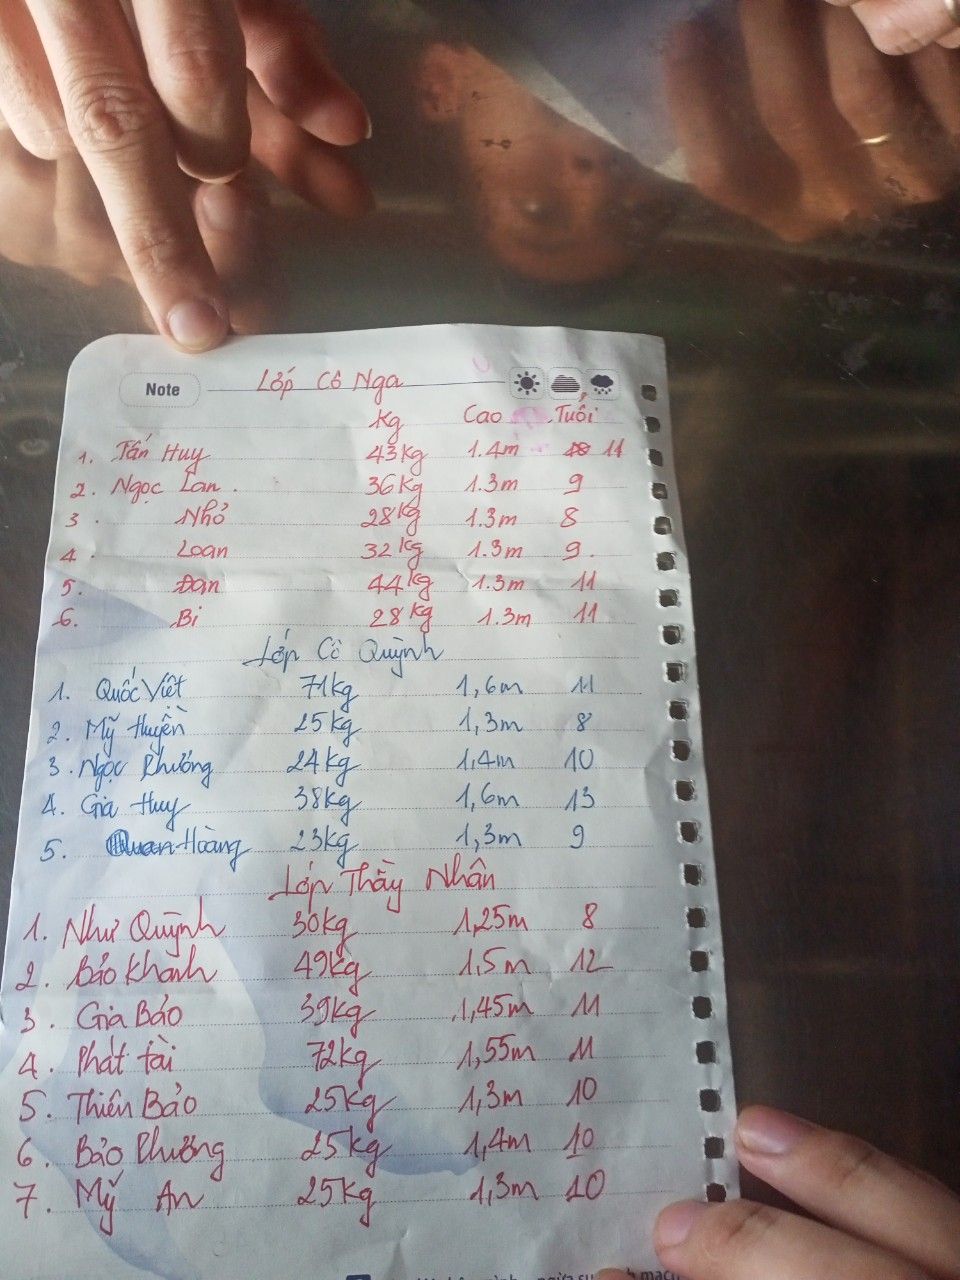 Note Lớp Cô Nga
Kg Cao Tuổi
1. Tấn Huy 43kg 1.4m 11
2. Ngọc Lan. 36kg 1.3m 9
3. Nhỏ 28kg 1.3m 8
4. Loan 32kg 1.3m 9.
5. Đan 44kg 1.3m 11
6. Bi 28kg 1.3m 11
Lớp Cô Quỳnh
1. Quốc Việt 71kg 1,6m 11
2. Mỹ Huyền 25kg 1,3m 8
3. Ngọc Phướng 24kg 1,4m 10
4. Gia Huy 38kg 1,6m 13
5. Hoàng 23kg 1,3m 9
Lớp Thầy Nhân
1. Như Quỳnh 30kg 1,25m 8
2. Bảo Khanh 49kg 1,5m 12
3. Gia Bảo 39kg 1,45m 11
4. Phát tài 72kg 1,55m 11
5. Thiên Bảo 25kg 1,3m 10
6. Bảo Phướng 25kg 1,4m 10
7. Mỹ An 25kg 1,3m 10